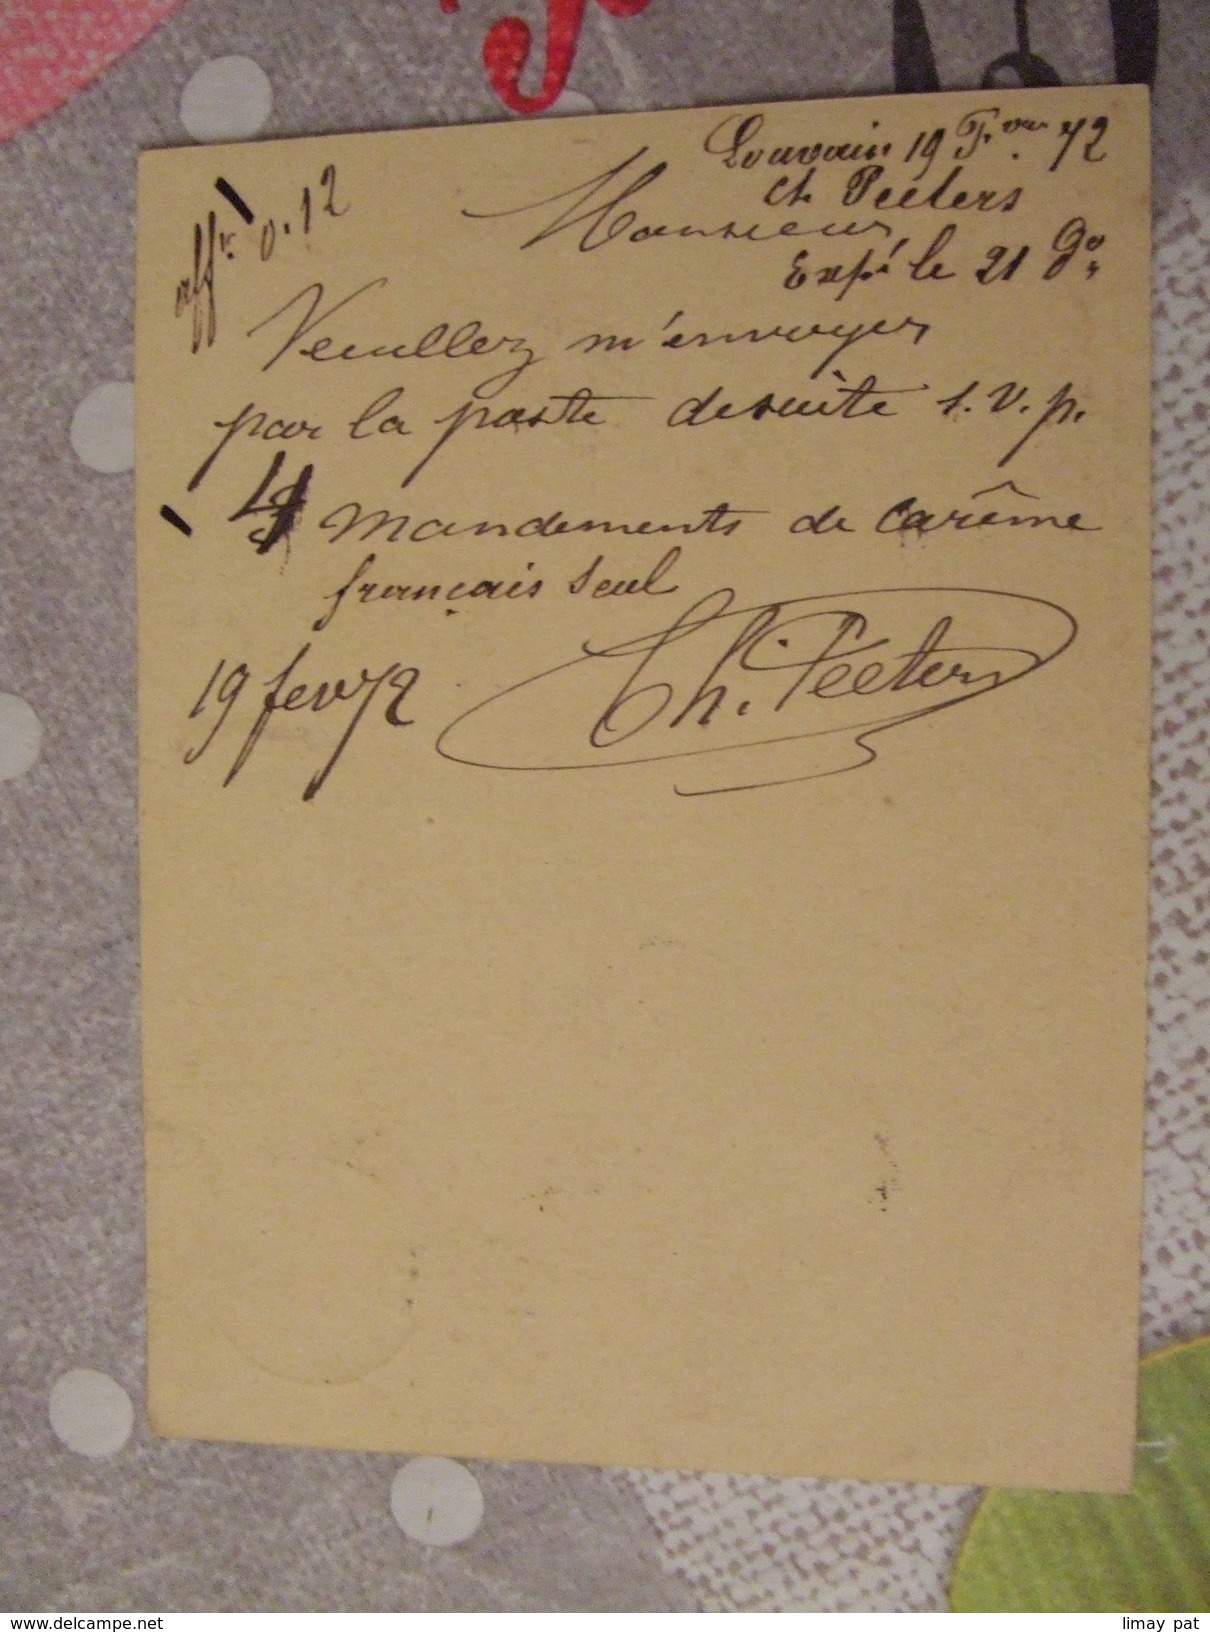 Louvain 19 Fvr. 72
Ch. Peeters
affr. 0.12
Monsieur,
Expé le 21 do
Veuillez m'envoyer
par la poste desuite s.v.p.
4 mandements de carême
français seul
19 fev 72
Ch. Peeters
delcampe.net
limay pat